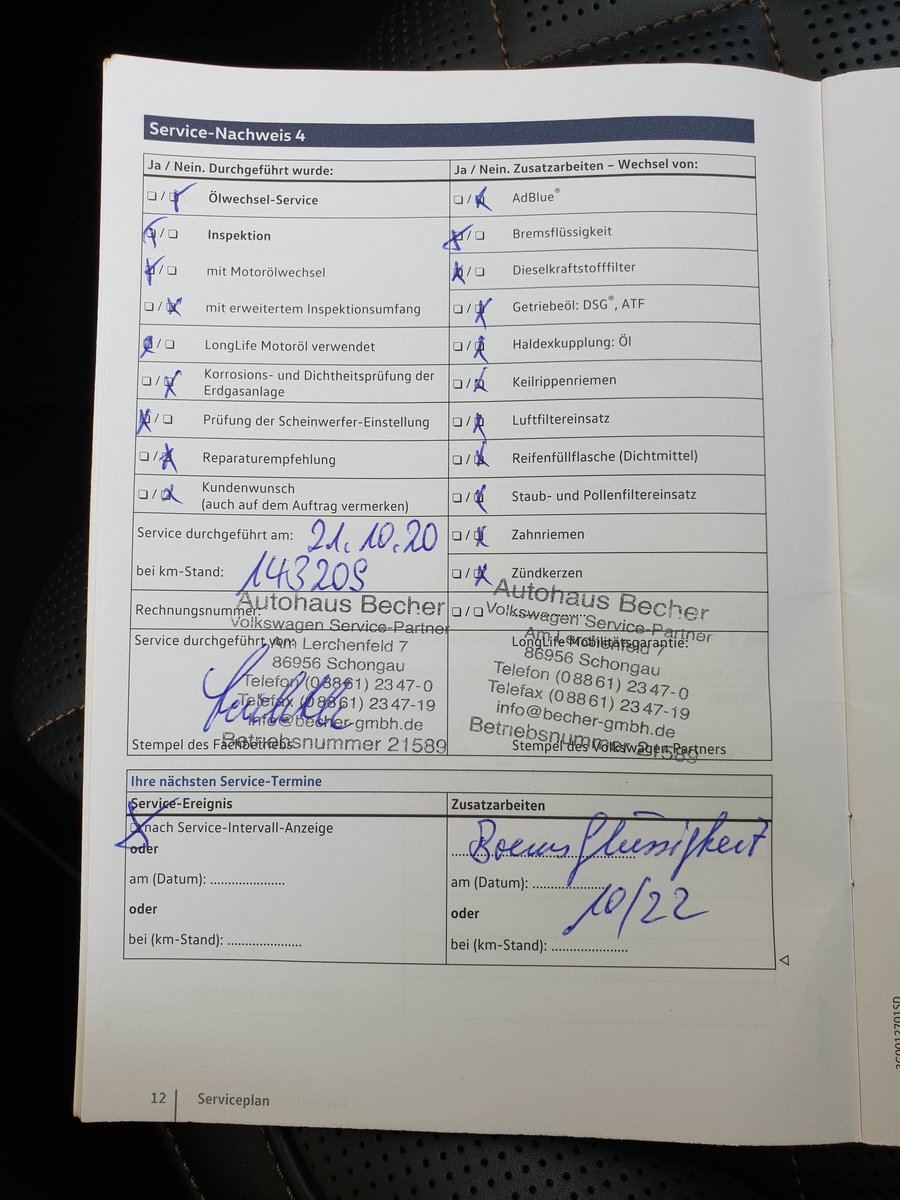 Service-Nachweis 4
Ja / Nein. Durchgeführt wurde:
☐ / ☒ Ölwechsel-Service
☒ / ☐ Inspektion
☒ / ☐ mit Motorölwechsel
☐ / ☒ mit erweitertem Inspektionsumfang
☒ / ☐ LongLife Motoröl verwendet
☐ / ☒ Korrosions- und Dichtheitsprüfung der
Erdgasanlage
☒ / ☐ Prüfung der Scheinwerfer-Einstellung
☐ / ☒ Reparaturempfehlung
☐ / ☒ Kundenwunsch
(auch auf dem Auftrag vermerken)
Service durchgeführt am: 21.10.20
bei km-Stand: 143209
Rechnungsnummer:
Service durchgeführt von:
Autohaus Becher
Volkswagen Service-Partner
Am Lerchenfeld 7
86956 Schongau
Telefon (0 88 61) 23 47-0
Telefax (0 88 61) 23 47-19
info@becher-gmbh.de
Betriebsnummer 21589
Stempel des Fachbetriebs
Ja / Nein. Zusatzarbeiten – Wechsel von:
☐ / ☒ AdBlue®
☒ / ☐ Bremsflüssigkeit
☒ / ☐ Dieselkraftstofffilter
☐ / ☒ Getriebeöl: DSG®, ATF
☐ / ☒ Haldexkupplung: Öl
☐ / ☒ Keilrippenriemen
☐ / ☒ Luftfiltereinsatz
☐ / ☒ Reifenfüllflasche (Dichtmittel)
☐ / ☒ Staub- und Pollenfiltereinsatz
☐ / ☒ Zahnriemen
☐ / ☒ Zündkerzen
☐ / ☐
LongLife Mobilitätsgarantie:
Autohaus Becher
Volkswagen Service-Partner
Am Lerchenfeld 7
86956 Schongau
Telefon (0 88 61) 23 47-0
Telefax (0 88 61) 23 47-19
info@becher-gmbh.de
Betriebsnummer 21589
Stempel des Volkswagen Partners
Ihre nächsten Service-Termine
Service-Ereignis
☒ nach Service-Intervall-Anzeige
oder
am (Datum): .....................
oder
bei (km-Stand): .....................
Zusatzarbeiten
Bremsflüssigkeit
am (Datum): .....................
10/22
oder
bei (km-Stand): .....................
12 Serviceplan